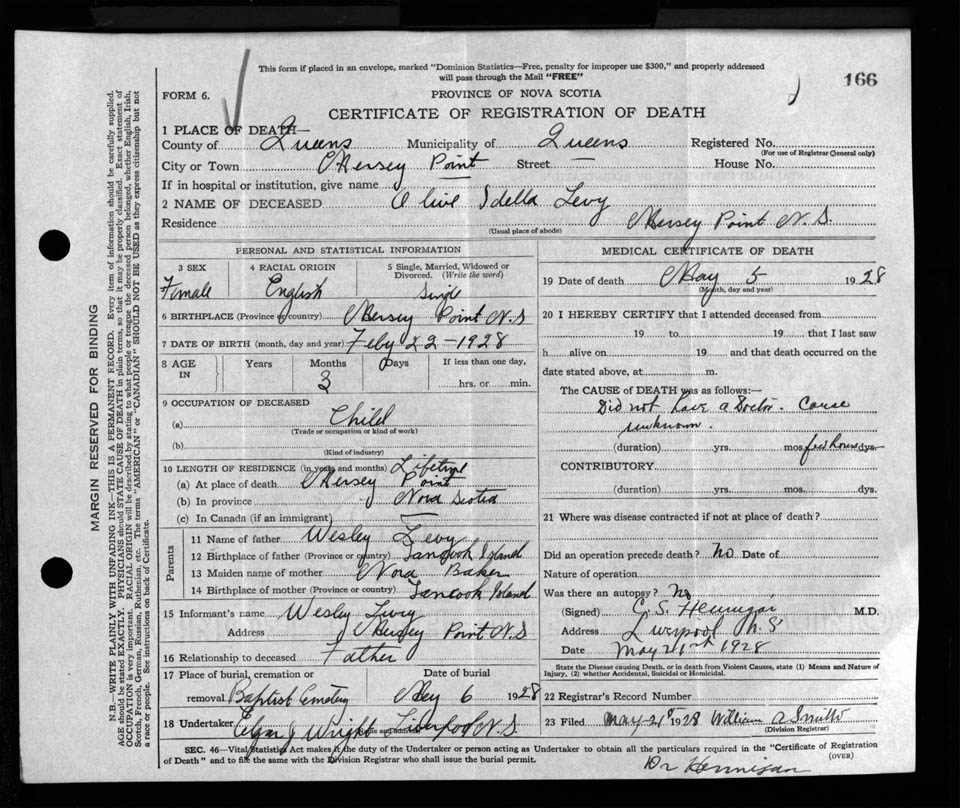 This form if placed in an envelope, marked "Dominion Statistics—Free, penalty for improper use $300," and properly addressed
will pass through the Mail "FREE"
166
FORM 6.
PROVINCE OF NOVA SCOTIA
CERTIFICATE OF REGISTRATION OF DEATH
1 PLACE OF DEATH—
County of Queens Municipality of Queens Registered No.
(For use of Registrar General only)
City or Town Mersey Point Street House No.
If in hospital or institution, give name
2 NAME OF DECEASED Olive Idella Levy
Residence Mersey Point N.S.
(Usual place of abode)
PERSONAL AND STATISTICAL INFORMATION
3 SEX 4 RACIAL ORIGIN 5 Single, Married, Widowed or
Divorced. (Write the word)
Female English Single
6 BIRTHPLACE (Province or country) Mersey Point N.S
7 DATE OF BIRTH (month, day and year) Feby 22-1928
8 AGE Years Months Days If less than one day,
IN 3 hrs. or min.
9 OCCUPATION OF DECEASED
(a) Child
(Trade or occupation or kind of work)
(b)
(Kind of industry)
10 LENGTH OF RESIDENCE (in years and months) Lifetime
(a) At place of death Mersey Point
(b) In province Nova Scotia
(c) In Canada (if an immigrant)
Parents
11 Name of father Wesley Levy
12 Birthplace of father (Province or country) Tancook Island
13 Maiden name of mother Nora Baker
14 Birthplace of mother (Province or country) Tancook Island
15 Informant's name Wesley Levy
Address Mersey Point N.S
16 Relationship to deceased Father
17 Place of burial, cremation or Date of burial
removal Baptist Cemetery May 6 1928
18 Undertaker Elgar J Wright Liverpool N.S.
(Name and address)
MEDICAL CERTIFICATE OF DEATH
19 Date of death May 5 1928
(Month, day and year)
20 I HEREBY CERTIFY that I attended deceased from
19 to 19 that I last saw
h alive on 19 and that death occurred on the
date stated above, at m.
The CAUSE of DEATH was as follows:—
Did not have a Doctor. Cause
unknown.
(duration) yrs. mos. few hours dys.
CONTRIBUTORY
(duration) yrs. mos. dys.
21 Where was disease contracted if not at place of death?
Did an operation precede death? no Date of
Nature of operation
Was there an autopsy? No
(Signed) C. S. Hennigar M.D.
Address Liverpool N.S.
Date May 21st 1928
State the Disease causing Death, or in death from Violent Causes, state (1) Means and Nature of
Injury, (2) whether Accidental, Suicidal or Homicidal.
22 Registrar's Record Number
23 Filed May-21st 1928 William A Smith
(Division Registrar)
SEC. 46—Vital Statistics Act makes it the duty of the Undertaker or person acting as Undertaker to obtain all the particulars required in the "Certificate of Registration
of Death" and to file the same with the Division Registrar who shall issue the burial permit.
(OVER)
Dr Hennigar
MARGIN RESERVED FOR BINDING
N.B.—WRITE PLAINLY WITH UNFADING INK—THIS IS A PERMANENT RECORD. Every item of information should be carefully supplied.
AGE should be stated EXACTLY. PHYSICIANS should STATE CAUSE OF DEATH in plain terms, so that it may be properly classified. Exact statement of
OCCUPATION is very important. RACIAL ORIGIN will be described by stating to what people or tongue the deceased person belonged, whether English, Irish,
Scotch, French, German, Russian, Ruthenian, etc. The terms "AMERICAN" or "CANADIAN" SHOULD NOT BE USED as they express citizenship but not
a race or people. See instructions on back of Certificate.